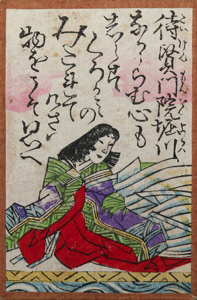 待賢門院堀川
なかからむ心も
しらす
くろかみの
みたれて
けさは
物をこそおもへ